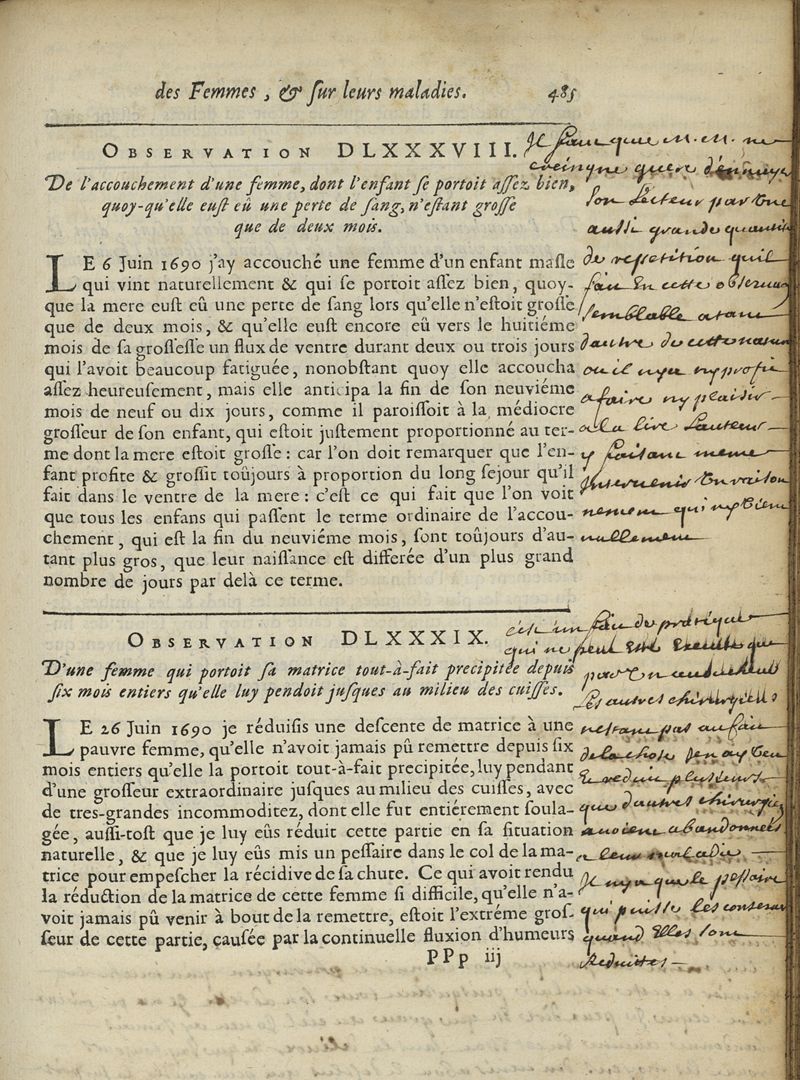 des Femmes, & ſur leurs maladies. 485
OBSERVATION DLXXXVIII.
De l'accouchement d'une femme, dont l'enfant ſe portoit aſſez bien,
quoy-qu'elle euſt eû une perte de ſang, n'eſtant groſſe
que de deux mois.
LE 6 Juin 1690 j'ay accouché une femme d'un enfant maſle
qui vint naturellement & qui ſe portoit aſſez bien, quoy-
que la mere euſt eû une perte de ſang lors qu'elle n'eſtoit groſſe
que de deux mois, & qu'elle euſt encore eû vers le huitiéme
mois de ſa groſſeſſe un flux de ventre durant deux ou trois jours
qui l'avoit beaucoup fatiguée, nonobſtant quoy elle accoucha
aſſez heureuſement, mais elle anticipa la fin de ſon neuviéme
mois de neuf ou dix jours, comme il paroiſſoit à la médiocre
groſſeur de ſon enfant, qui eſtoit juſtement proportionné au ter-
me dont la mere eſtoit groſſe: car l'on doit remarquer que l'en-
fant profite & groſſit toûjours à proportion du long ſejour qu'il
fait dans le ventre de la mere: c'eſt ce qui fait que l'on voit
que tous les enfans qui paſſent le terme ordinaire de l'accou-
chement, qui eſt la fin du neuviéme mois, ſont toûjours d'au-
tant plus gros, que leur naiſſance eſt differée d'un plus grand
nombre de jours par delà ce terme.
Il faut que m. m. ne
creingne guere d'ennuyer
son Lecteur par une
aussi grande quantité
de repetition quil
fait En cette observaõn
semblable a tant
dautre de cette nature
ou il nya ny profit
a faire ny plaisir
a la lire Lauteur
y faisant meme
Intervenir Un raison
nement qui ny vient
nullement
OBSERVATION DLXXXIX.
D'une femme qui portoit ſa matrice tout-à-fait precipitée depuis
ſix mois entiers qu'elle luy pendoit juſques au milieu des cuiſſes.
LE 26 Juin 1690 je réduiſis une deſcente de matrice à une
pauvre femme, qu'elle n'avoit jamais pû remettre depuis ſix
mois entiers qu'elle la portoit tout-à-fait precipitée, luy pendant
d'une groſſeur extraordinaire juſques au milieu des cuiſſes, avec
de tres-grandes incommoditez, dont elle fut entiérement ſoula-
gée, auſſi-toſt que je luy eûs réduit cette partie en ſa ſituation
naturelle, & que je luy eûs mis un peſſaire dans le col de la ma-
trice pour empeſcher la récidive de ſa chute. Ce qui avoit rendu
la réduction de la matrice de cette femme ſi difficile, qu'elle n'a-
voit jamais pû venir à bout de la remettre, eſtoit l'extréme groſ-
ſeur de cette partie, cauſée par la continuelle fluxion d'humeurs
PPp iij
c'est un fait de pratique
qui ne peut que
par Un
Les autres chirurgiens
nestant pas au fait
de la chose Jen ay Veu
& reduit plusieurs
que dautres chirurgiens
avoient abandonnees
a leur maladie
Il nya que le pessaire
qui puisse les conserver
quand Elles sont
Reduittes